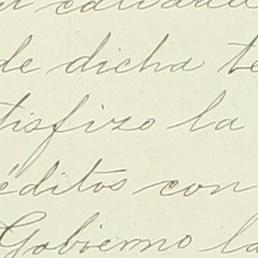 de dicha te
tisfizo la
éditos con
Gobierno la